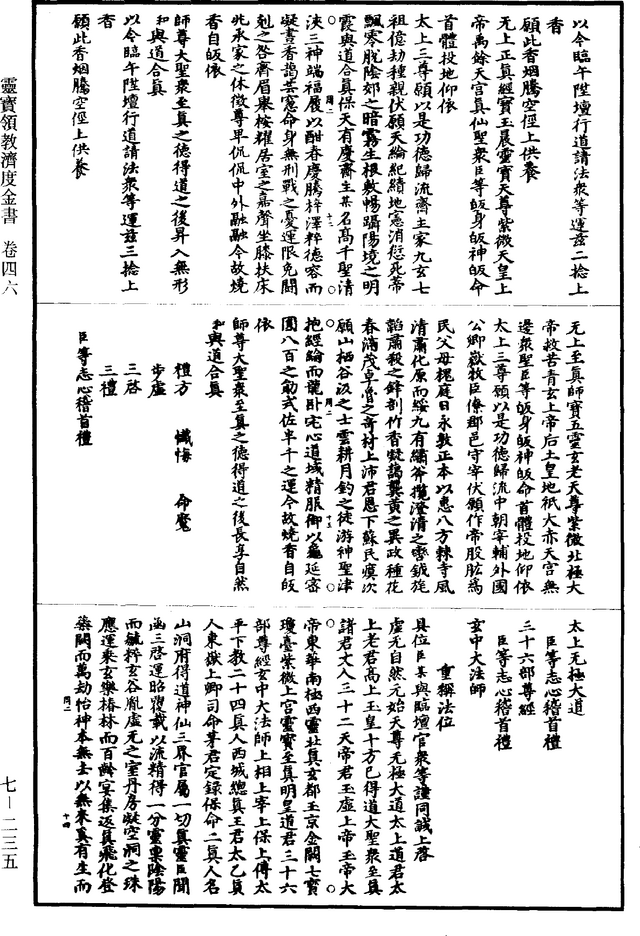 靈寶領教濟度金書 卷四六
七—二三五
以今臨午陞壇行道請法衆等運茲二捻上
香
願此香烟騰空徑上供養
无上正真經寶玉晨靈寶天尊紫微天皇上
帝禹餘天宫真仙聖衆臣等皈身皈神皈命
首體投地仰依
太上三尊願以是功德歸流齋主家九玄七
祖億劫種親伏願天綸紀績地憲消愆死帝
飄零脫陰郊之暗霧生根敷暢躡陽境之明
霞與道合真保天有慶齋主某名髙千聖清
浹三神端福履以酣春慶騰梓澤粹德容而
凝晝香藹芸憲命身無刑戰之憂運限免鬬
剋之咎齊眉舉桉耀居室之嘉聲坐膝扶床
兆承家之休徵尊卑侃侃中外融融今故燒
香自皈依
師尊大聖衆至真之德得道之後昇入無形
和與道合真
以今臨午陞壇行道請法衆等運茲三捻上
香
願此香烟騰空徑上供養
无上至真師寶五靈玄老天尊紫微北極大
帝救苦青玄上帝后土皇地祇大赤天宫無
邊衆聖臣等皈身皈神皈命首體投地仰依
太上三尊願以是功德歸流中朝宰輔外國
公卿嶽牧臣僚郡邑守宰伏願作帝股肱爲
民父母槐庭日永敷正本以惠八方棘寺風
清肅化原而綏九有繡斧攬澄清之轡鉞旄
韜肅殺之鋒剖竹香凝藹龔黃之異政種花
春滿茂卓魯之奇材上沛君恩下蘇民瘼次
願山栖谷汲之士雲耕月釣之徒游神聖津
抱經綸而龍卧宅心道域精服御以龜延密
圓八百之勛式佐半千之運今故燒香自皈
依
師尊大聖衆至真之德得道之後長享自然
和與道合真
禮方 懺悔 命魔
步虛
三啓
三禮
臣等志心稽首禮
太上无極大道
臣等志心稽首禮
三十六部尊經
臣等志心稽首禮
玄中大法師
重稱法位
具位臣某與臨壇官衆等謹同誠上啓
虛无自然元始天尊无極大道太上道君太
上老君高上玉皇十方已得道大聖衆至真
諸君丈人三十二天帝君玉虛上帝玉帝大
帝東華南極西靈北真玄都玉京金闕七寶
瓊臺紫微上宫靈寶至真明皇道君三十六
部尊經玄中大法師上相上宰上保上傅太
平下教二十四真人西城總真王君太乙真
人東嶽上卿司命茅君定録保命二真人名
山洞府得道神仙三界官屬一切真靈臣聞
函三啓運昭覆載以流精得一分靈稟陰陽
而毓粹玄谷胤虛无之室丹房凝空洞之珠
應運乘玄樂椿林而百齡宴集返真飛化登
蘂闕而萬劫怡神本無去以無來奚有生而